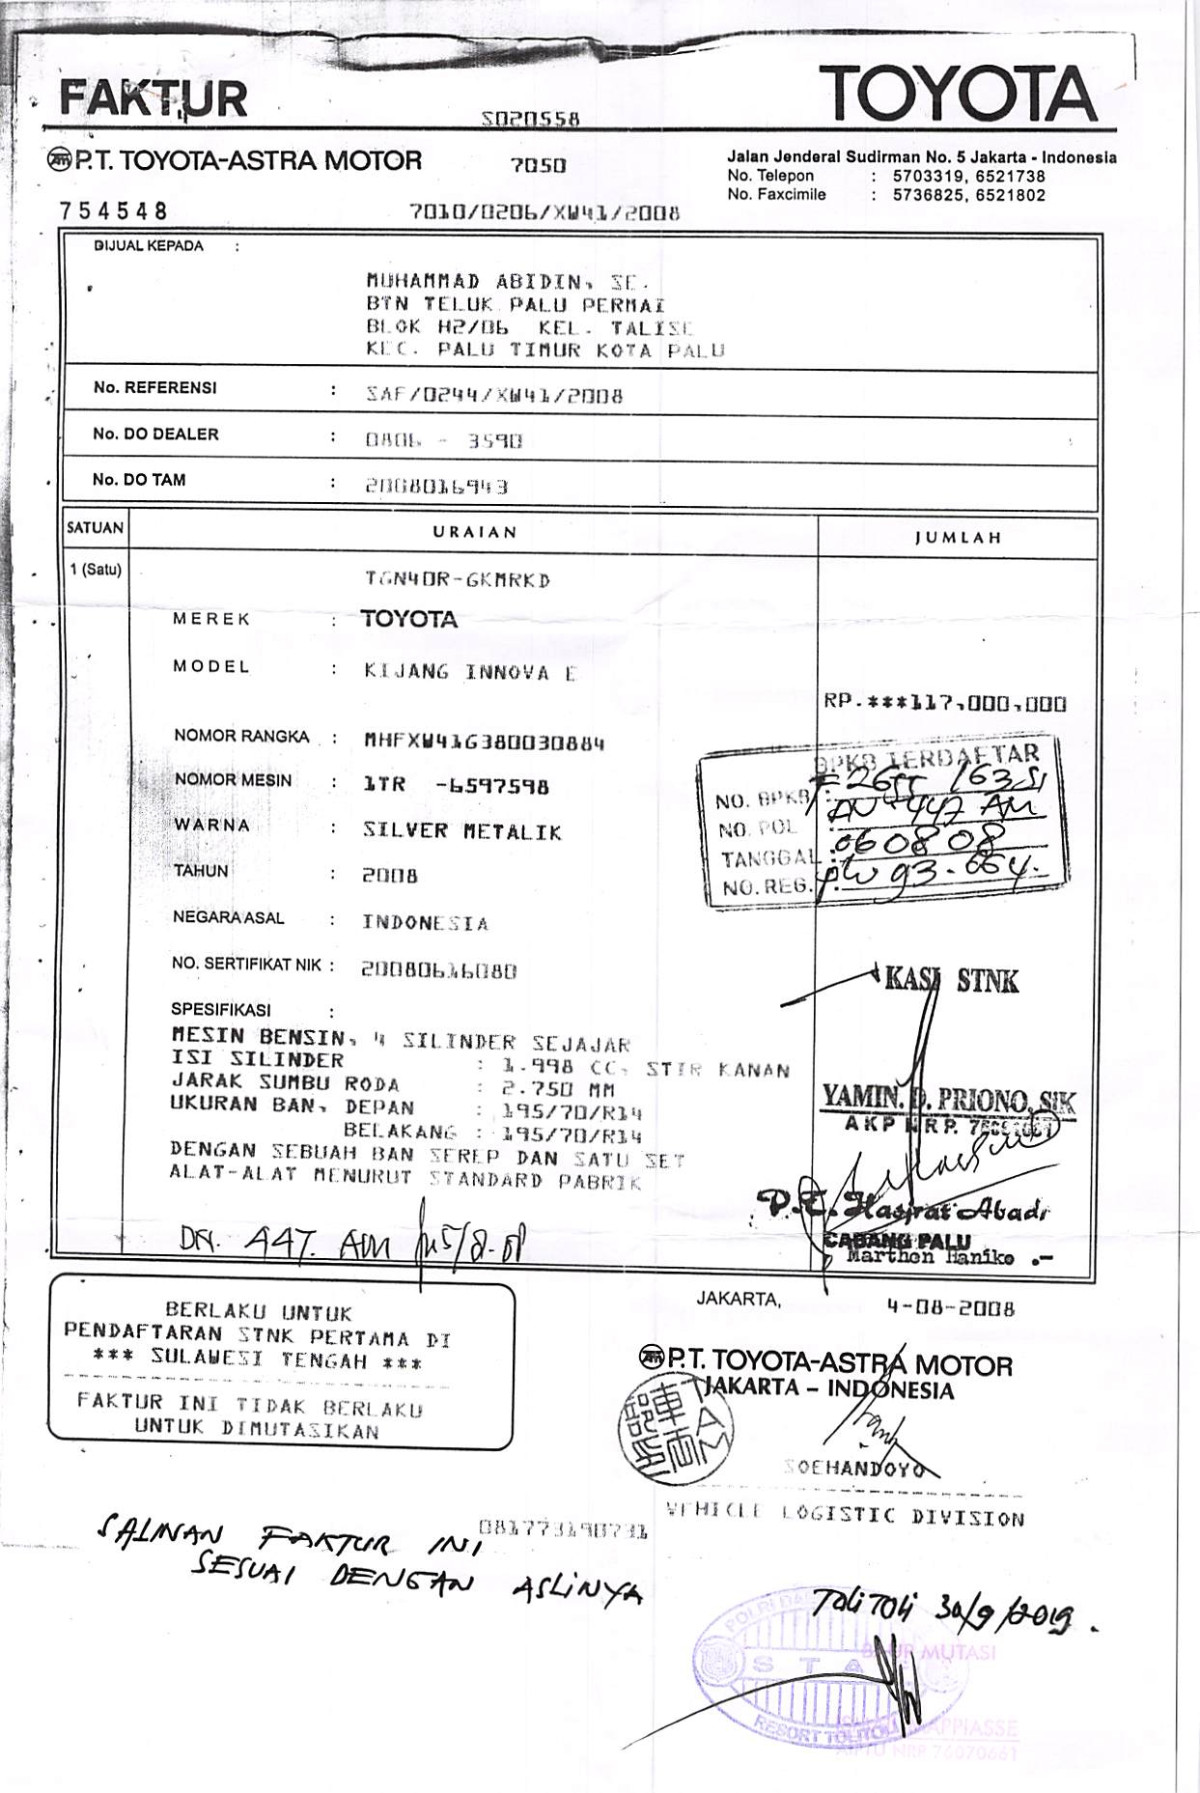 FAKTUR
TOYOTA
S020558
P.T. TOYOTA-ASTRA MOTOR
7050
Jalan Jenderal Sudirman No. 5 Jakarta - Indonesia
No. Telepon : 5703319, 6521738
No. Faxcimile : 5736825, 6521802
754548
7010/0206/XW41/2008
DIJUAL KEPADA :
MUHAMMAD ABIDIN, SE.
BTN TELUK PALU PERMAI
BLOK H2/06 KEL. TALISE
KEC. PALU TIMUR KOTA PALU
No. REFERENSI : SAF/0244/XW41/2008
No. DO DEALER : 0806 - 3590
No. DO TAM : 2008016943
SATUAN URAIAN JUMLAH
1 (Satu) TGN40R-GKMRKD
MEREK : TOYOTA
MODEL : KIJANG INNOVA E
RP.***117,000,000
NOMOR RANGKA : MHFXW41G380030884
NOMOR MESIN : 1TR -6597598
WARNA : SILVER METALIK
TAHUN : 2008
NEGARA ASAL : INDONESIA
NO. SERTIFIKAT NIK : 20080616080
BPKB TERDAFTAR
NO. BPKB :
NO. POL : DN 447 AM
TANGGAL : 060808
NO. REG. plw 93.664.
KASI STNK
SPESIFIKASI :
MESIN BENSIN, 4 SILINDER SEJAJAR
ISI SILINDER : 1.998 CC, STIR KANAN
JARAK SUMBU RODA : 2.750 MM
UKURAN BAN, DEPAN : 195/70/R14
BELAKANG : 195/70/R14
DENGAN SEBUAH BAN SEREP DAN SATU SET
ALAT-ALAT MENURUT STANDARD PABRIK
YAMIN. D. PRIONO, SIK
AKP NRP.
P.T. Hasjrat Abadi
CABANG PALU
Marthen Haniko .-
DN. 447. AM 5/8-08
JAKARTA, 4-08-2008
BERLAKU UNTUK
PENDAFTARAN STNK PERTAMA DI
*** SULAWESI TENGAH ***
FAKTUR INI TIDAK BERLAKU
UNTUK DIMUTASIKAN
P.T. TOYOTA-ASTRA MOTOR
JAKARTA - INDONESIA
SOEHANDOYO
VEHICLE LOGISTIC DIVISION
081773190731
SALINAN FAKTUR INI
SESUAI DENGAN ASLINYA
ToliToli 30/9/2019.
BAUR MUTASI
RESORT TOLITOLI
AIPTU NRP 76070661